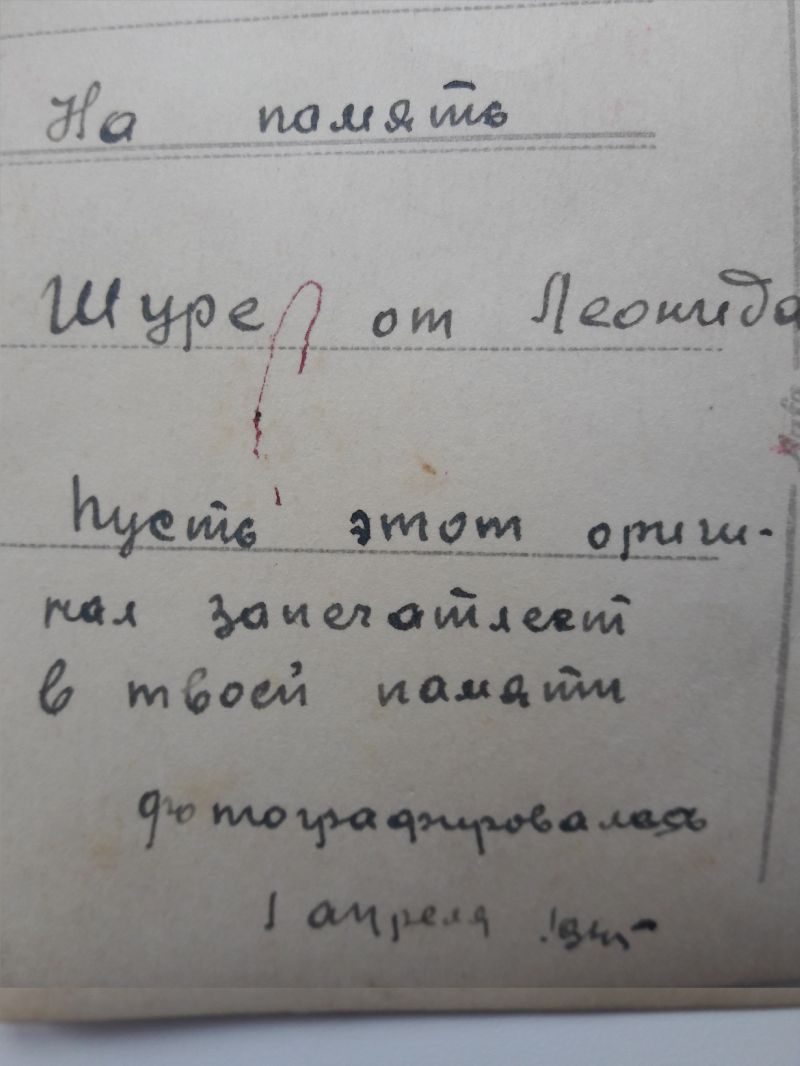 На память
Шуре от Леонида
Пусть этот ориги-
нал запечатлеет
в твоей памяти
фотографировалась
1 апреля